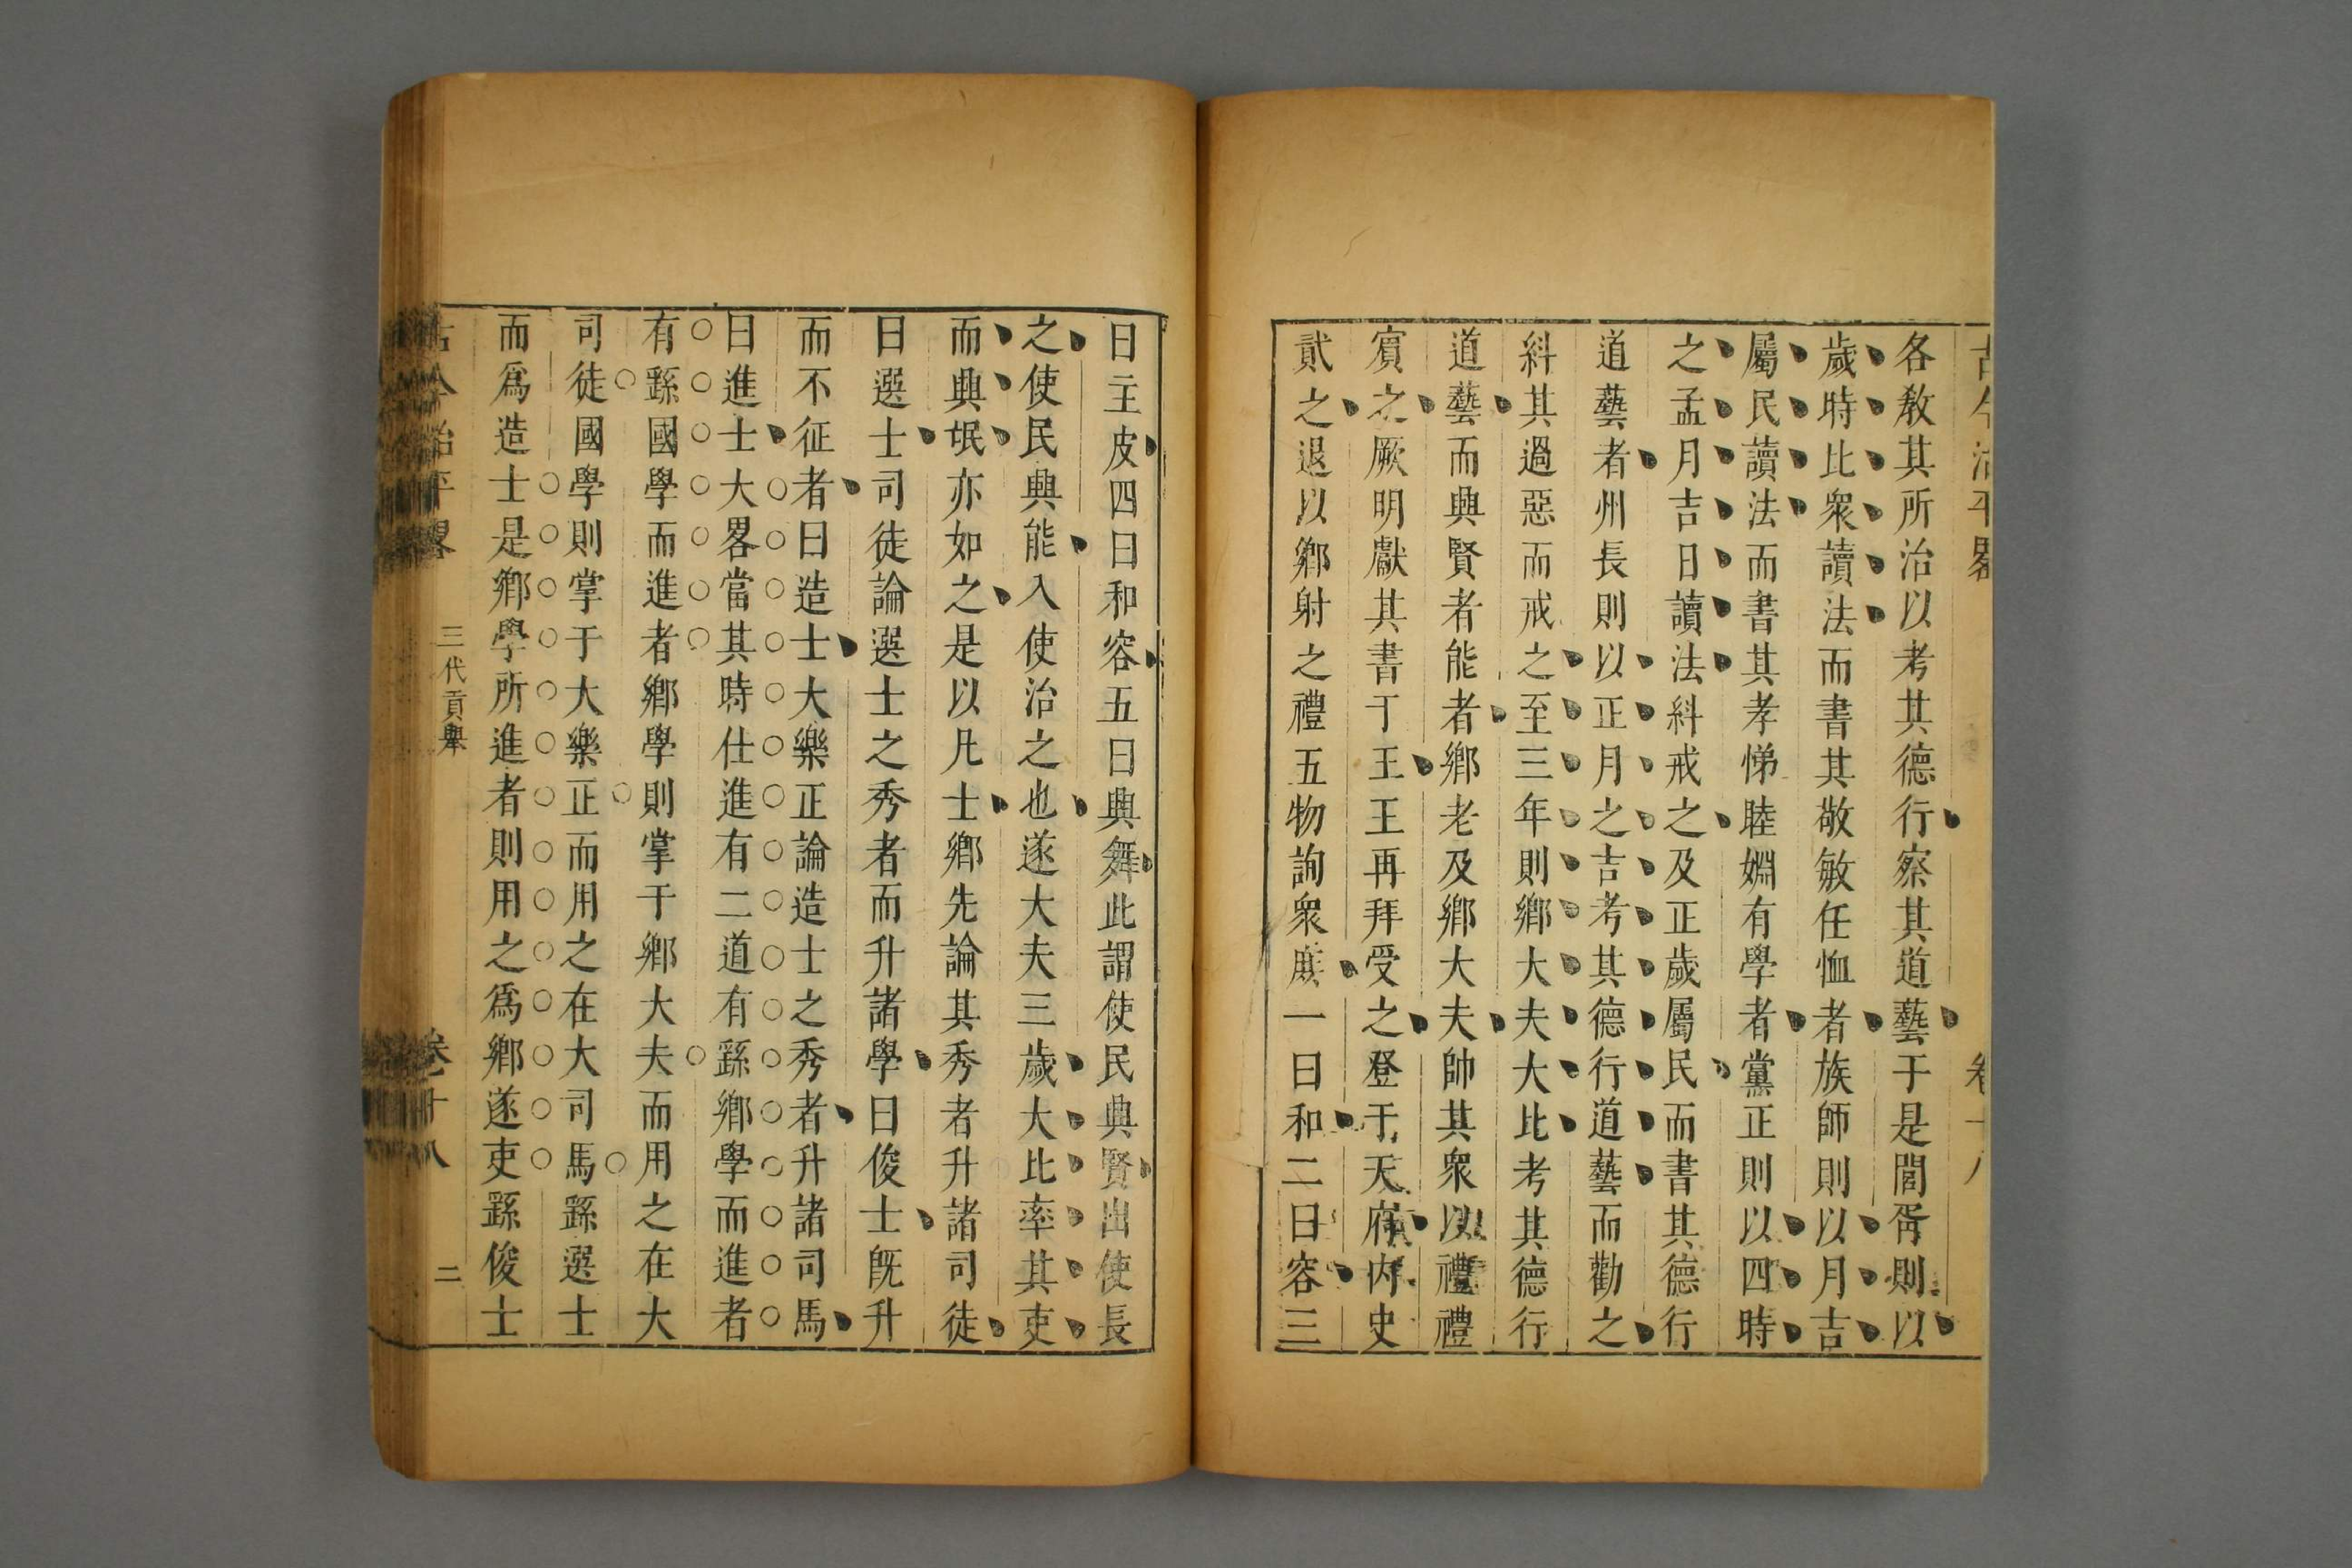 古今治平畧 卷十八
各敎其所治以考其德行察其道藝于是閭胥則以
歲時比衆讀法而書其敬敏任恤者族師則以月吉
屬民讀法而書其孝悌睦婣有學者黨正則以四時
之孟月吉日讀法糾戒之及正歲屬民而書其德行
道藝者州長則以正月之吉考其德行道藝而勸之
糾其過惡而戒之至三年則鄉大夫大比考其德行
道藝而興賢者能者鄉老及鄉大夫帥其衆以禮禮
賔之厥明獻其書于王王再拜受之登于天府內史
貳之退以鄉射之禮五物詢衆庶一曰和二曰容三
曰主皮四曰和容五曰興舞此謂使民興賢出使長
之使民興能入使治之也遂大夫三歲大比率其吏
而興氓亦如之是以凡士鄉先論其秀者升諸司徒
曰選士司徒論選士之秀者而升諸學曰俊士旣升
而不征者曰造士大樂正論造士之秀者升諸司馬
曰進士大畧當其時仕進有二道有繇鄉學而進者
有繇國學而進者鄉學則掌于鄉大夫而用之在大
司徒國學則掌于大樂正而用之在大司馬繇選士
而爲造士是鄉學所進者則用之爲鄉遂吏繇俊士
古今治平畧 三代貢舉 卷十八 二